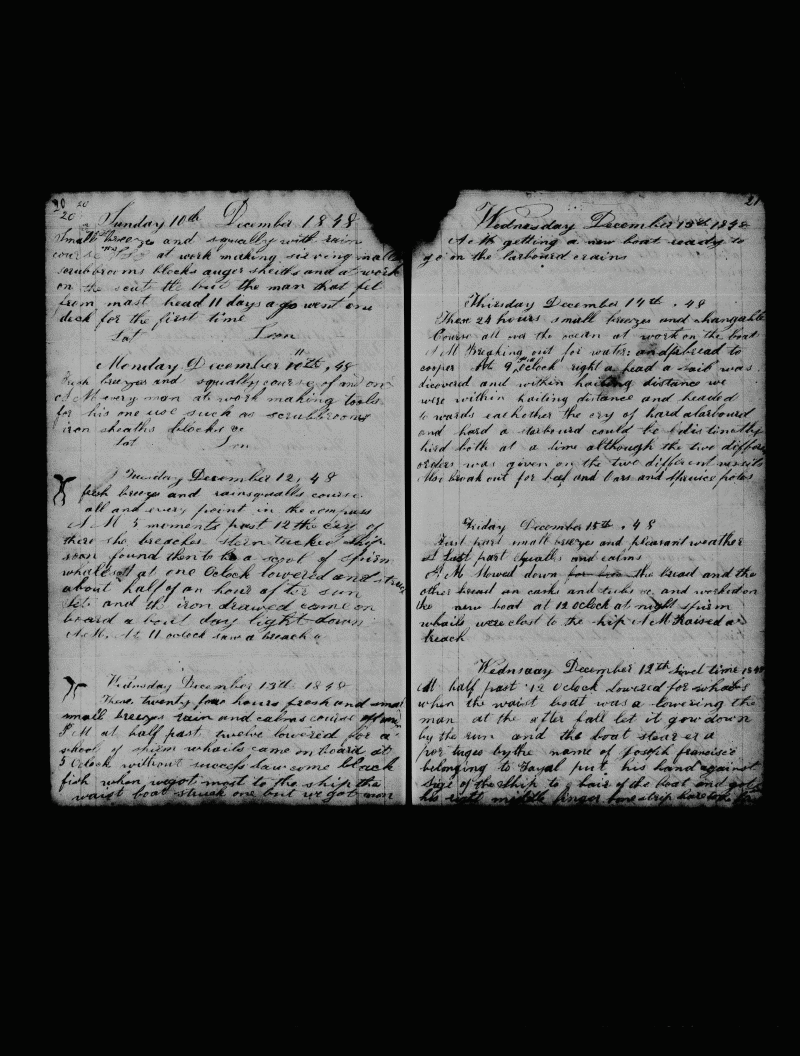 20
20
20
Sunday 10th December 1848
Small breezes and squally with rain
course at work making sizeing malls
scrubbrooms blocks auger sheiths and at work
on the the man that fel
from mast head 11 days ago went on
deck for the first time
Lat Lon
Monday December 11th, 48
fresh breezes and squally course of and on
A M every man at work making tools
for his one use such as scrubbrooms
iron sheaths blocks &c
Lat Lon
Tuesday December 12, 48
fresh breezes and rainsqualls course
all and every point in the compass
A M 5 moments past 12 the cry of
there she breaches stern tucked ship
soon found then to be a scool of spirm
whales at one Oclock lowered and struck
about half of an hour after sun
set and the iron drawed came on
board a bout day light down
A M. At 11 oclock saw a breach
Wednsday December 13th 1848
These twenty four hours fresh and smal
small breezes rain and calms course of
P M at half past twelve lowered for a
school of spirm whails came on board at
5 Oclock without success saw some black
fish when we got most to the ship the
waist boat struck one but we got
21
Wednesday December 13th 1848
A M getting a new boat ready to
go on the larboard crains
Thirsday December 14th . 48
These 24 hours small breezes and changable
Course all over the ocean at work on the boat
A M Breaking out for water and bread to
cooper At 9 oclock right a head a sail was
dicovered and within haiting distance we
were within hailing distance and headed
to wards eachother the cry of hard alarboard
and hard a starboard could be distinctly
hird both at a time although the two differ
orders was given on the two different vessils
Also break out for beef and Oars and spruice poles
Friday December 15th . 48
First part small breezes and pleasant weather
Last part squalls and calms
A M Stowed down the bread and the
other bread in casks and tubs &c and worked on
the new boat at 12 oclock at night spirm
whails were close to the ship A M Raised a
breach
Wednsday December 12th time 1848
At half past 12 Oclock lowered for whales
when the waist boat was a lowering the
man at the after fall let it go down
by the run and the boat stearer a
portugee by the name of Joseph francisce
belonging to Fayal put his hand against
side of the ship to boat and
his right middle finger bone